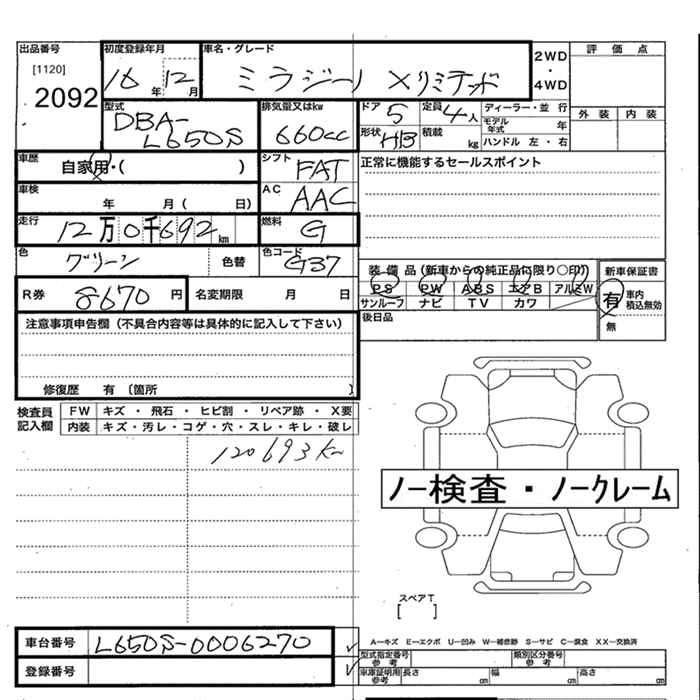 出品番号
[1120]
2092
初度登録年月
16 年 12 月
車名・グレード
ミラジーノ Xリミテッド
2WD
・
4WD
評 価 点
外 装 内 装
型式
DBA-
L650S
排気量又はkw
660cc
ドア 5
定員 4人
形状 HB
積載 kg
ディーラー・並 行
モデル年式 年
ハンドル 左・右
車歴
自家用・( )
シフト
FAT
正常に機能するセールスポイント
車検
年 月( 日)
AC
AAC
走行
12万0千692km
燃料
G
色
グリーン
色替
色コード
G37
装 備 品(新車からの純正品に限り○印)
PS PW ABS エアB アルミW
サンルーフ ナビ TV カワ
新車保証書
有
車内
積込無効
無
R券
8670 円
名変期限 月 日
後日品
注意事項申告欄(不具合内容等は具体的に記入して下さい)
修復歴 有(箇所 )
検査員
記入欄
FW キズ・飛石・ヒビ割・リペア跡・X要
内装 キズ・汚レ・コゲ・穴・スレ・キレ・破レ
120693km
ノー検査・ノークレーム
スペアT
[ ]
車台番号
L650S-0006270
登録番号
A−キズ E−エクボ U−凹み W−補修跡 S−サビ C−腐食 XX−交換済
型式指定番号
参考
類別区分番号
参考
車庫証明用
参考
長さ cm 幅 cm 高さ cm